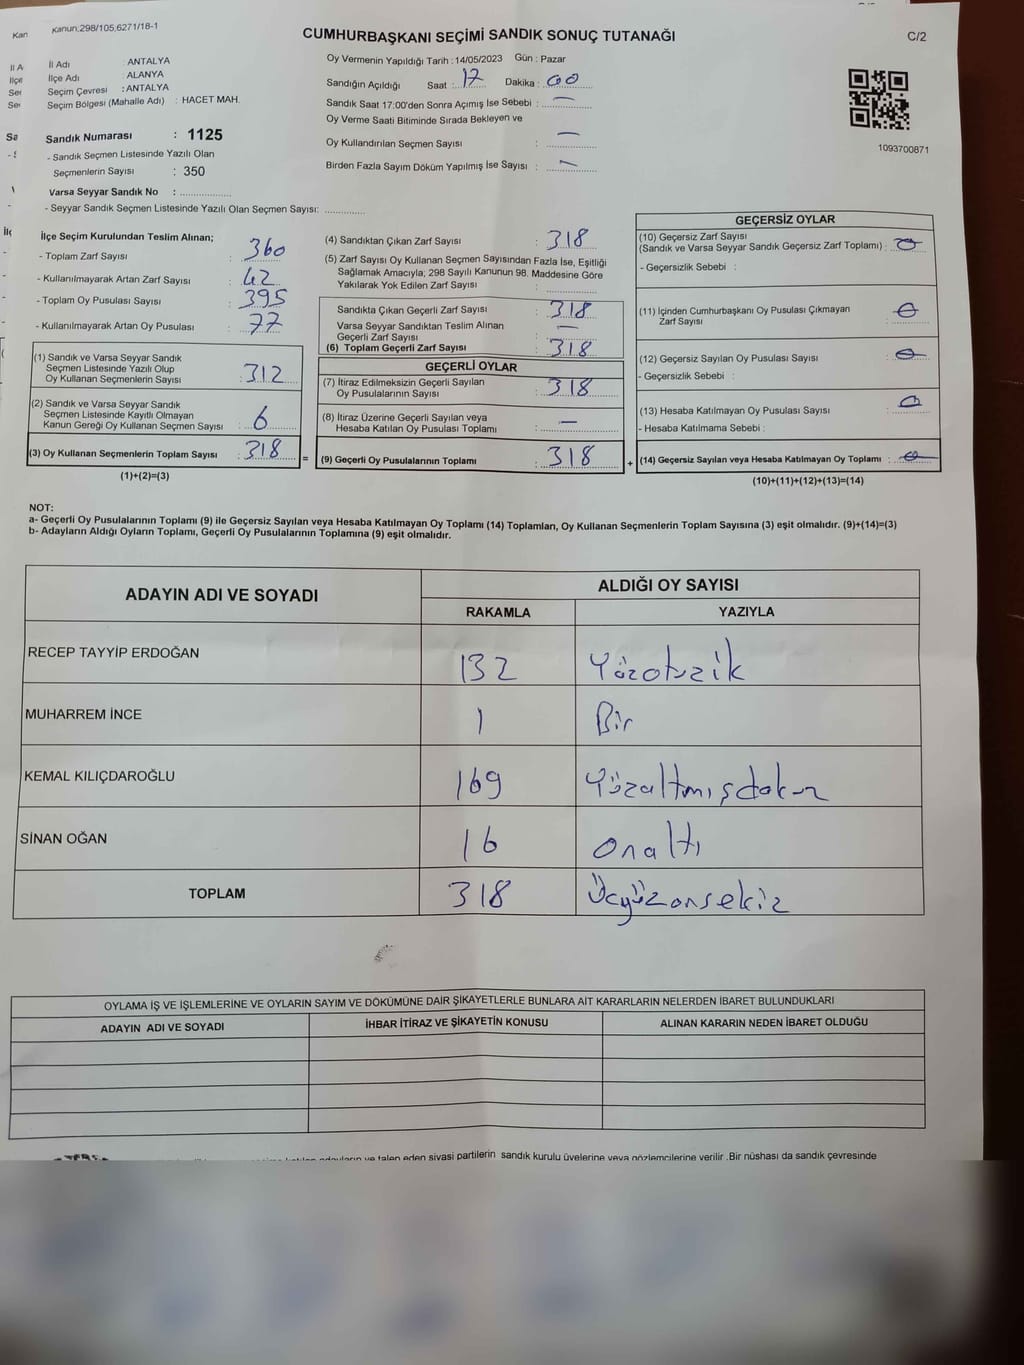 Kanun:298/105,6271/18-1
CUMHURBAŞKANI SEÇİMİ SANDIK SONUÇ TUTANAĞI
C/2
İl Adı : ANTALYA
İlçe Adı : ALANYA
Seçim Çevresi : ANTALYA
Seçim Bölgesi (Mahalle Adı) : HACET MAH.
Sandık Numarası : 1125
- Sandık Seçmen Listesinde Yazılı Olan
Seçmenlerin Sayısı : 350
Varsa Seyyar Sandık No :
- Seyyar Sandık Seçmen Listesinde Yazılı Olan Seçmen Sayısı:
Oy Vermenin Yapıldığı Tarih : 14/05/2023 Gün : Pazar
Sandığın Açıldığı Saat : 17 Dakika : 00
Sandık Saat 17:00'den Sonra Açımış İse Sebebi : —
Oy Verme Saati Bitiminde Sırada Bekleyen ve
Oy Kullandırılan Seçmen Sayısı : —
Birden Fazla Sayım Döküm Yapılmış İse Sayısı : —
1093700871
İlçe Seçim Kurulundan Teslim Alınan;
- Toplam Zarf Sayısı : 360
- Kullanılmayarak Artan Zarf Sayısı : 42
- Toplam Oy Pusulası Sayısı : 395
- Kullanılmayarak Artan Oy Pusulası : 77
(1) Sandık ve Varsa Seyyar Sandık
Seçmen Listesinde Yazılı Olup
Oy Kullanan Seçmenlerin Sayısı : 312
(2) Sandık ve Varsa Seyyar Sandık
Seçmen Listesinde Kayıtlı Olmayan
Kanun Gereği Oy Kullanan Seçmen Sayısı : 6
(3) Oy Kullanan Seçmenlerin Toplam Sayısı : 318
(1)+(2)=(3)
=
(4) Sandıktan Çıkan Zarf Sayısı : 318
(5) Zarf Sayısı Oy Kullanan Seçmen Sayısından Fazla İse, Eşitliği
Sağlamak Amacıyla; 298 Sayılı Kanunun 98. Maddesine Göre
Yakılarak Yok Edilen Zarf Sayısı :
Sandıkta Çıkan Geçerli Zarf Sayısı : 318
Varsa Seyyar Sandıktan Teslim Alınan
Geçerli Zarf Sayısı : —
(6) Toplam Geçerli Zarf Sayısı : 318
GEÇERLİ OYLAR
(7) İtiraz Edilmeksizin Geçerli Sayılan
Oy Pusulalarının Sayısı : 318
(8) İtiraz Üzerine Geçerli Sayılan veya
Hesaba Katılan Oy Pusulası Toplamı : —
(9) Geçerli Oy Pusulalarının Toplamı : 318
+
GEÇERSİZ OYLAR
(10) Geçersiz Zarf Sayısı
(Sandık ve Varsa Seyyar Sandık Geçersiz Zarf Toplamı) : 0
- Geçersizlik Sebebi :
(11) İçinden Cumhurbaşkanı Oy Pusulası Çıkmayan
Zarf Sayısı : 0
(12) Geçersiz Sayılan Oy Pusulası Sayısı : 0
- Geçersizlik Sebebi :
(13) Hesaba Katılmayan Oy Pusulası Sayısı : 0
- Hesaba Katılmama Sebebi :
(14) Geçersiz Sayılan veya Hesaba Katılmayan Oy Toplamı : 0
(10)+(11)+(12)+(13)=(14)
NOT:
a- Geçerli Oy Pusulalarının Toplamı (9) ile Geçersiz Sayılan veya Hesaba Katılmayan Oy Toplamı (14) Toplamları, Oy Kullanan Seçmenlerin Toplam Sayısına (3) eşit olmalıdır. (9)+(14)=(3)
b- Adayların Aldığı Oyların Toplamı, Geçerli Oy Pusulalarının Toplamına (9) eşit olmalıdır.
ADAYIN ADI VE SOYADI
ALDIĞI OY SAYISI
RAKAMLA YAZIYLA
RECEP TAYYİP ERDOĞAN 132 Yüzotuziki
MUHARREM İNCE 1 Bir
KEMAL KILIÇDAROĞLU 169 Yüzaltmışdokuz
SİNAN OĞAN 16 Onaltı
TOPLAM 318 Üçyüzonsekiz
OYLAMA İŞ VE İŞLEMLERİNE VE OYLARIN SAYIM VE DÖKÜMÜNE DAİR ŞİKAYETLERLE BUNLARA AİT KARARLARIN NELERDEN İBARET BULUNDUKLARI
ADAYIN ADI VE SOYADI İHBAR İTİRAZ VE ŞİKAYETİN KONUSU ALINAN KARARIN NEDEN İBARET OLDUĞU
adayların ve talep eden siyasi partilerin sandık kurulu üyelerine veya gözlemcilerine verilir .Bir nüshası da sandık çevresinde